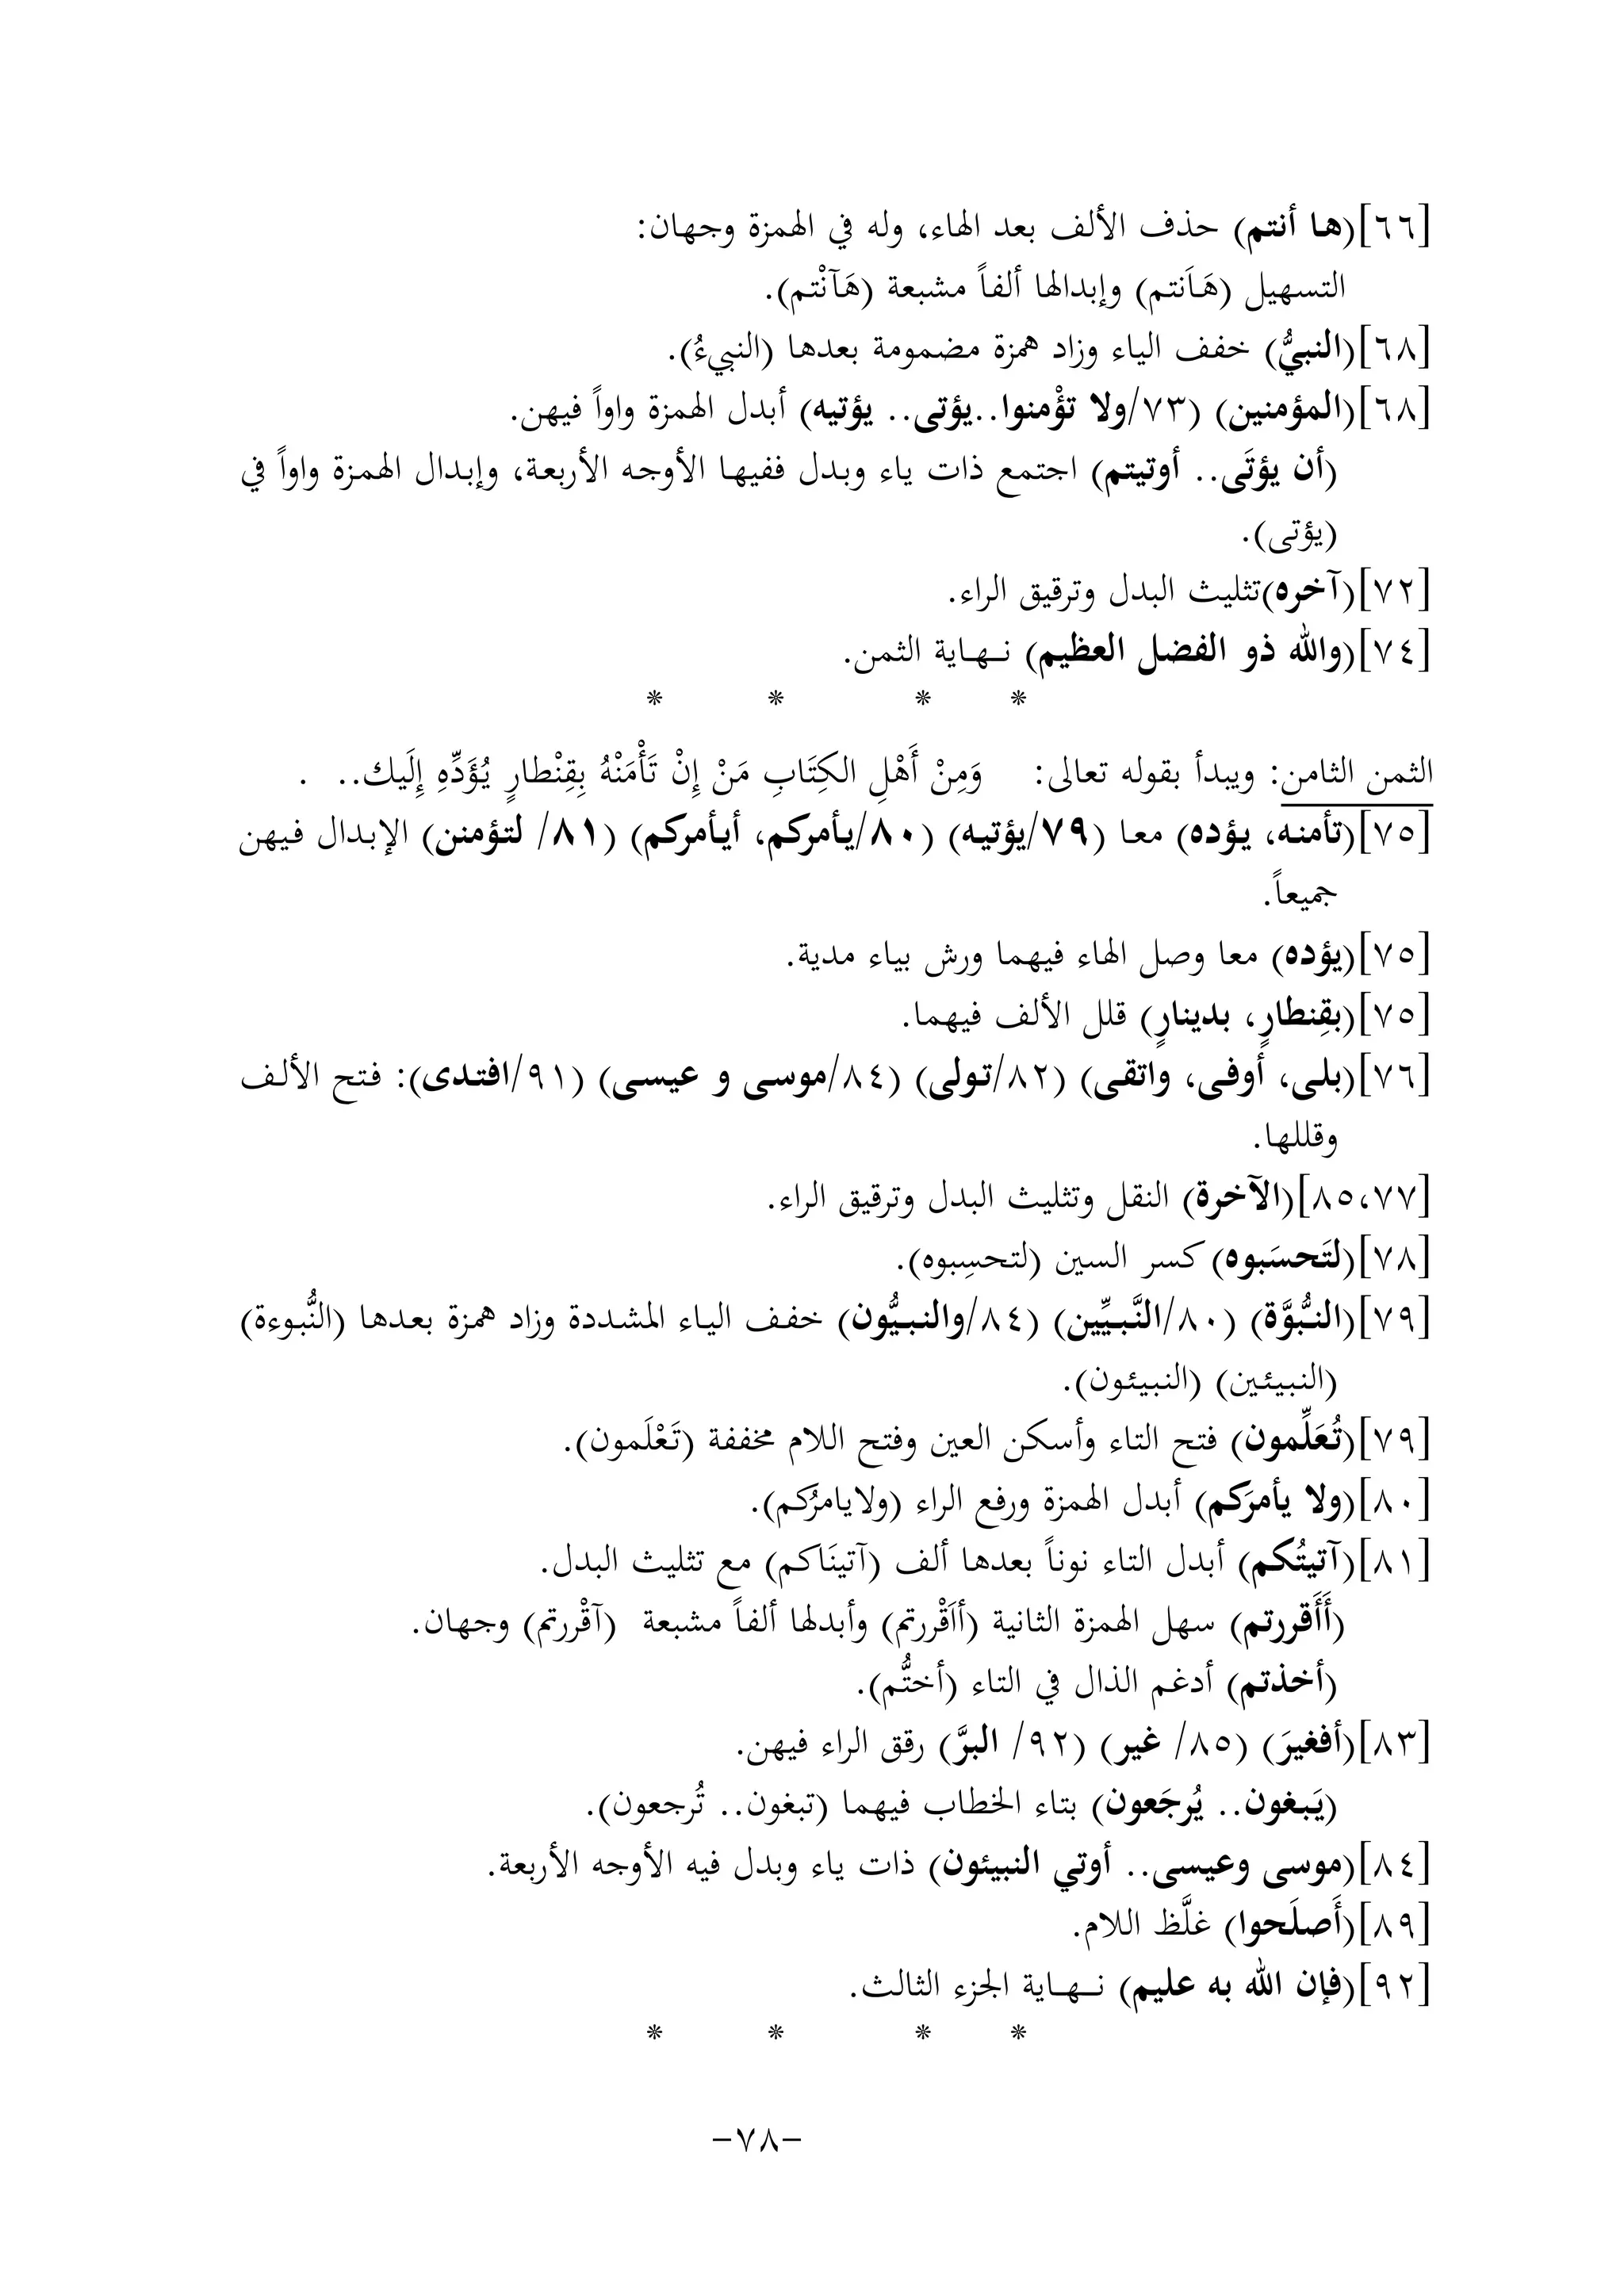 [٦٦](ها أنتم) حذف الألف بعد الهاء، وله في الهمزة وجهان:
التسهيل (هَاَنتم) وإبدالها ألفاً مشبعة (هَآنْتم).
[٦٨](النبيُّ) خفف الياء وزاد همزة مضمومة بعدها (النبيءُ).
[٦٨](المؤمنين) (٧٣/ولا تؤْمنوا..يؤتى.. يؤتيه) أبدل الهمزة واواً فيهن.
(أن يؤتَى.. أوتيتم) اجتمع ذات ياء وبدل ففيها الأوجه الأربعة، وإبدال الهمزة واواً في
(يؤتى).
[٧٢](آخره)تثليث البدل وترقيق الراء.
[٧٤](والله ذو الفضل العظيم) نـهـاية الثمن.
* * * *
الثمن الثامن: ويبدأ بقوله تعالى: وَمِنْ أَهْلِ الكِتَابِ مَنْ إِنْ تَأْمَنْهُ بِقِنْطارٍ يُؤَدِّهِ إِلَيك.. .
[٧٥](تأمنه، يؤده) معا (٧٩/يؤتيه) (٨٠/يأمركم، أيأمركم) (٨١/ لتؤمنن) الإبدال فيهن
جميعاً.
[٧٥](يؤده) معا وصل الهاء فيهما ورش بياء مدية.
[٧٥](بقِنطارٍ، بدينارٍ) قلل الألف فيهما.
[٧٦](بلى، أوفى، واتقى) (٨٢/تولى) (٨٤/موسى و عيسى) (٩١/افتدى): فتح الألف
وقللها.
[٨٥،٧٧](الآخرة) النقل وتثليث البدل وترقيق الراء.
[٧٨](لتَحسَبوه) كسر السين (لتحسِبوه).
[٧٩](النُّبُوَّة) (٨٠/النَّبيِّين) (٨٤/والنبيُّون) خفف الياء المشددة وزاد همزة بعدها (النُّبوءة)
(النبيئين) (النبيئون).
[٧٩](تُعَلِّمون) فتح التاء وأسكن العين وفتح اللام مخففة (تَعْلَمون).
[٨٠](ولا يأمرَكم) أبدل الهمزة ورفع الراء (ولايامرُكم).
[٨١](آتيتُكم) أبدل التاء نوناً بعدها ألف (آتينَاكم) مع تثليث البدل.
(أَأَقررتم) سهل الهمزة الثانية (أاَقْررتم) وأبدلها ألفاً مشبعة (آقْررتم) وجهان.
(أخذتم) أدغم الذال في التاء (أختُّم).
[٨٣](أفغيرَ) (٨٥/ غير) (٩٢/ البرَّ) رقق الراء فيهن.
(يَبغون.. يُرجَعون) بتاء الخطاب فيهما (تبغون.. تُرجعون).
[٨٤](موسى وعيسى.. أوتي النبيئون) ذات ياء وبدل فيه الأوجه الأربعة.
[٨٩](أَصلَحوا) غلَّظ اللام.
[٩٢](فإن الله به عليم) نـهـاية الجزء الثالث.
* * * *
-٧٨-